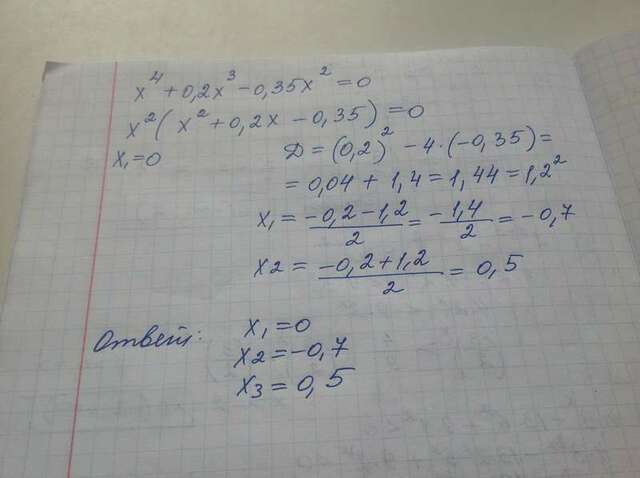 x⁴ + 0,2x³ - 0,35x² = 0
x² ( x² + 0,2x - 0,35) = 0
x₁ = 0
Д = (0,2)² - 4 · (-0,35) =
= 0,04 + 1,4 = 1,44 = 1,2²
x₁ = (-0,2-1,2)/2 = -1,4/2 = -0,7
x2 = (-0,2+1,2)/2 = 0,5
Ответ:
x₁ = 0
x2 = -0,7
x3 = 0,5